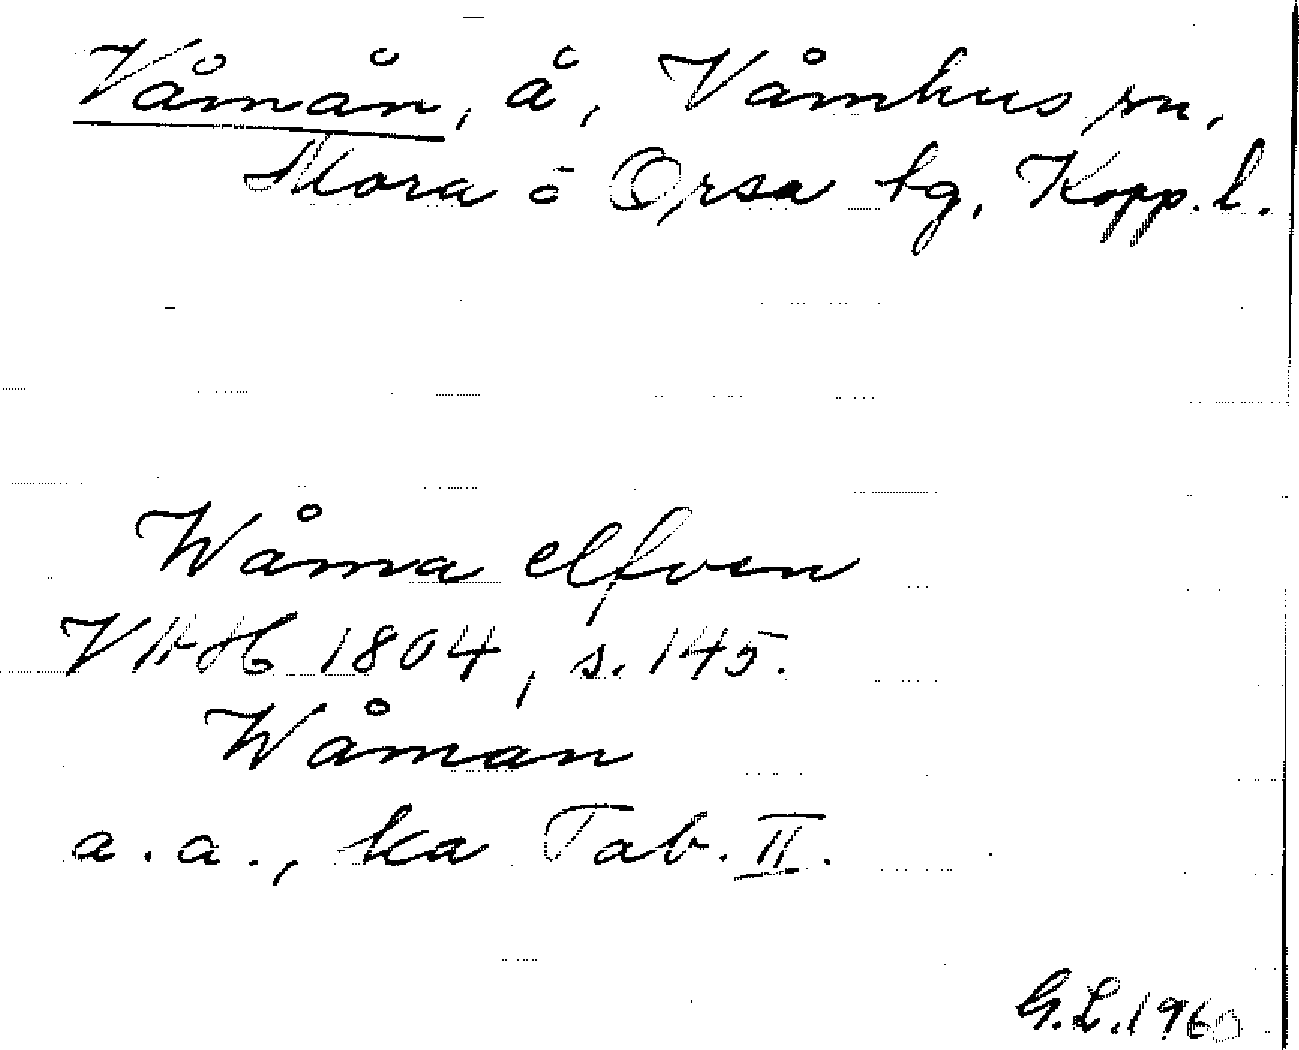 Våmån, å, Våmhus sn,
Mora o Orsa tg, Kopp. l.
Wåma elfven
VAH 1804, s. 145.
Wåman
a. a., ka Tab. II.
G.L. 1960